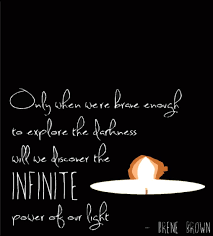 Only when we're brave enough
to explore the darkness
will we discover the
INFINITE
power of our light
- BRENE BROWN